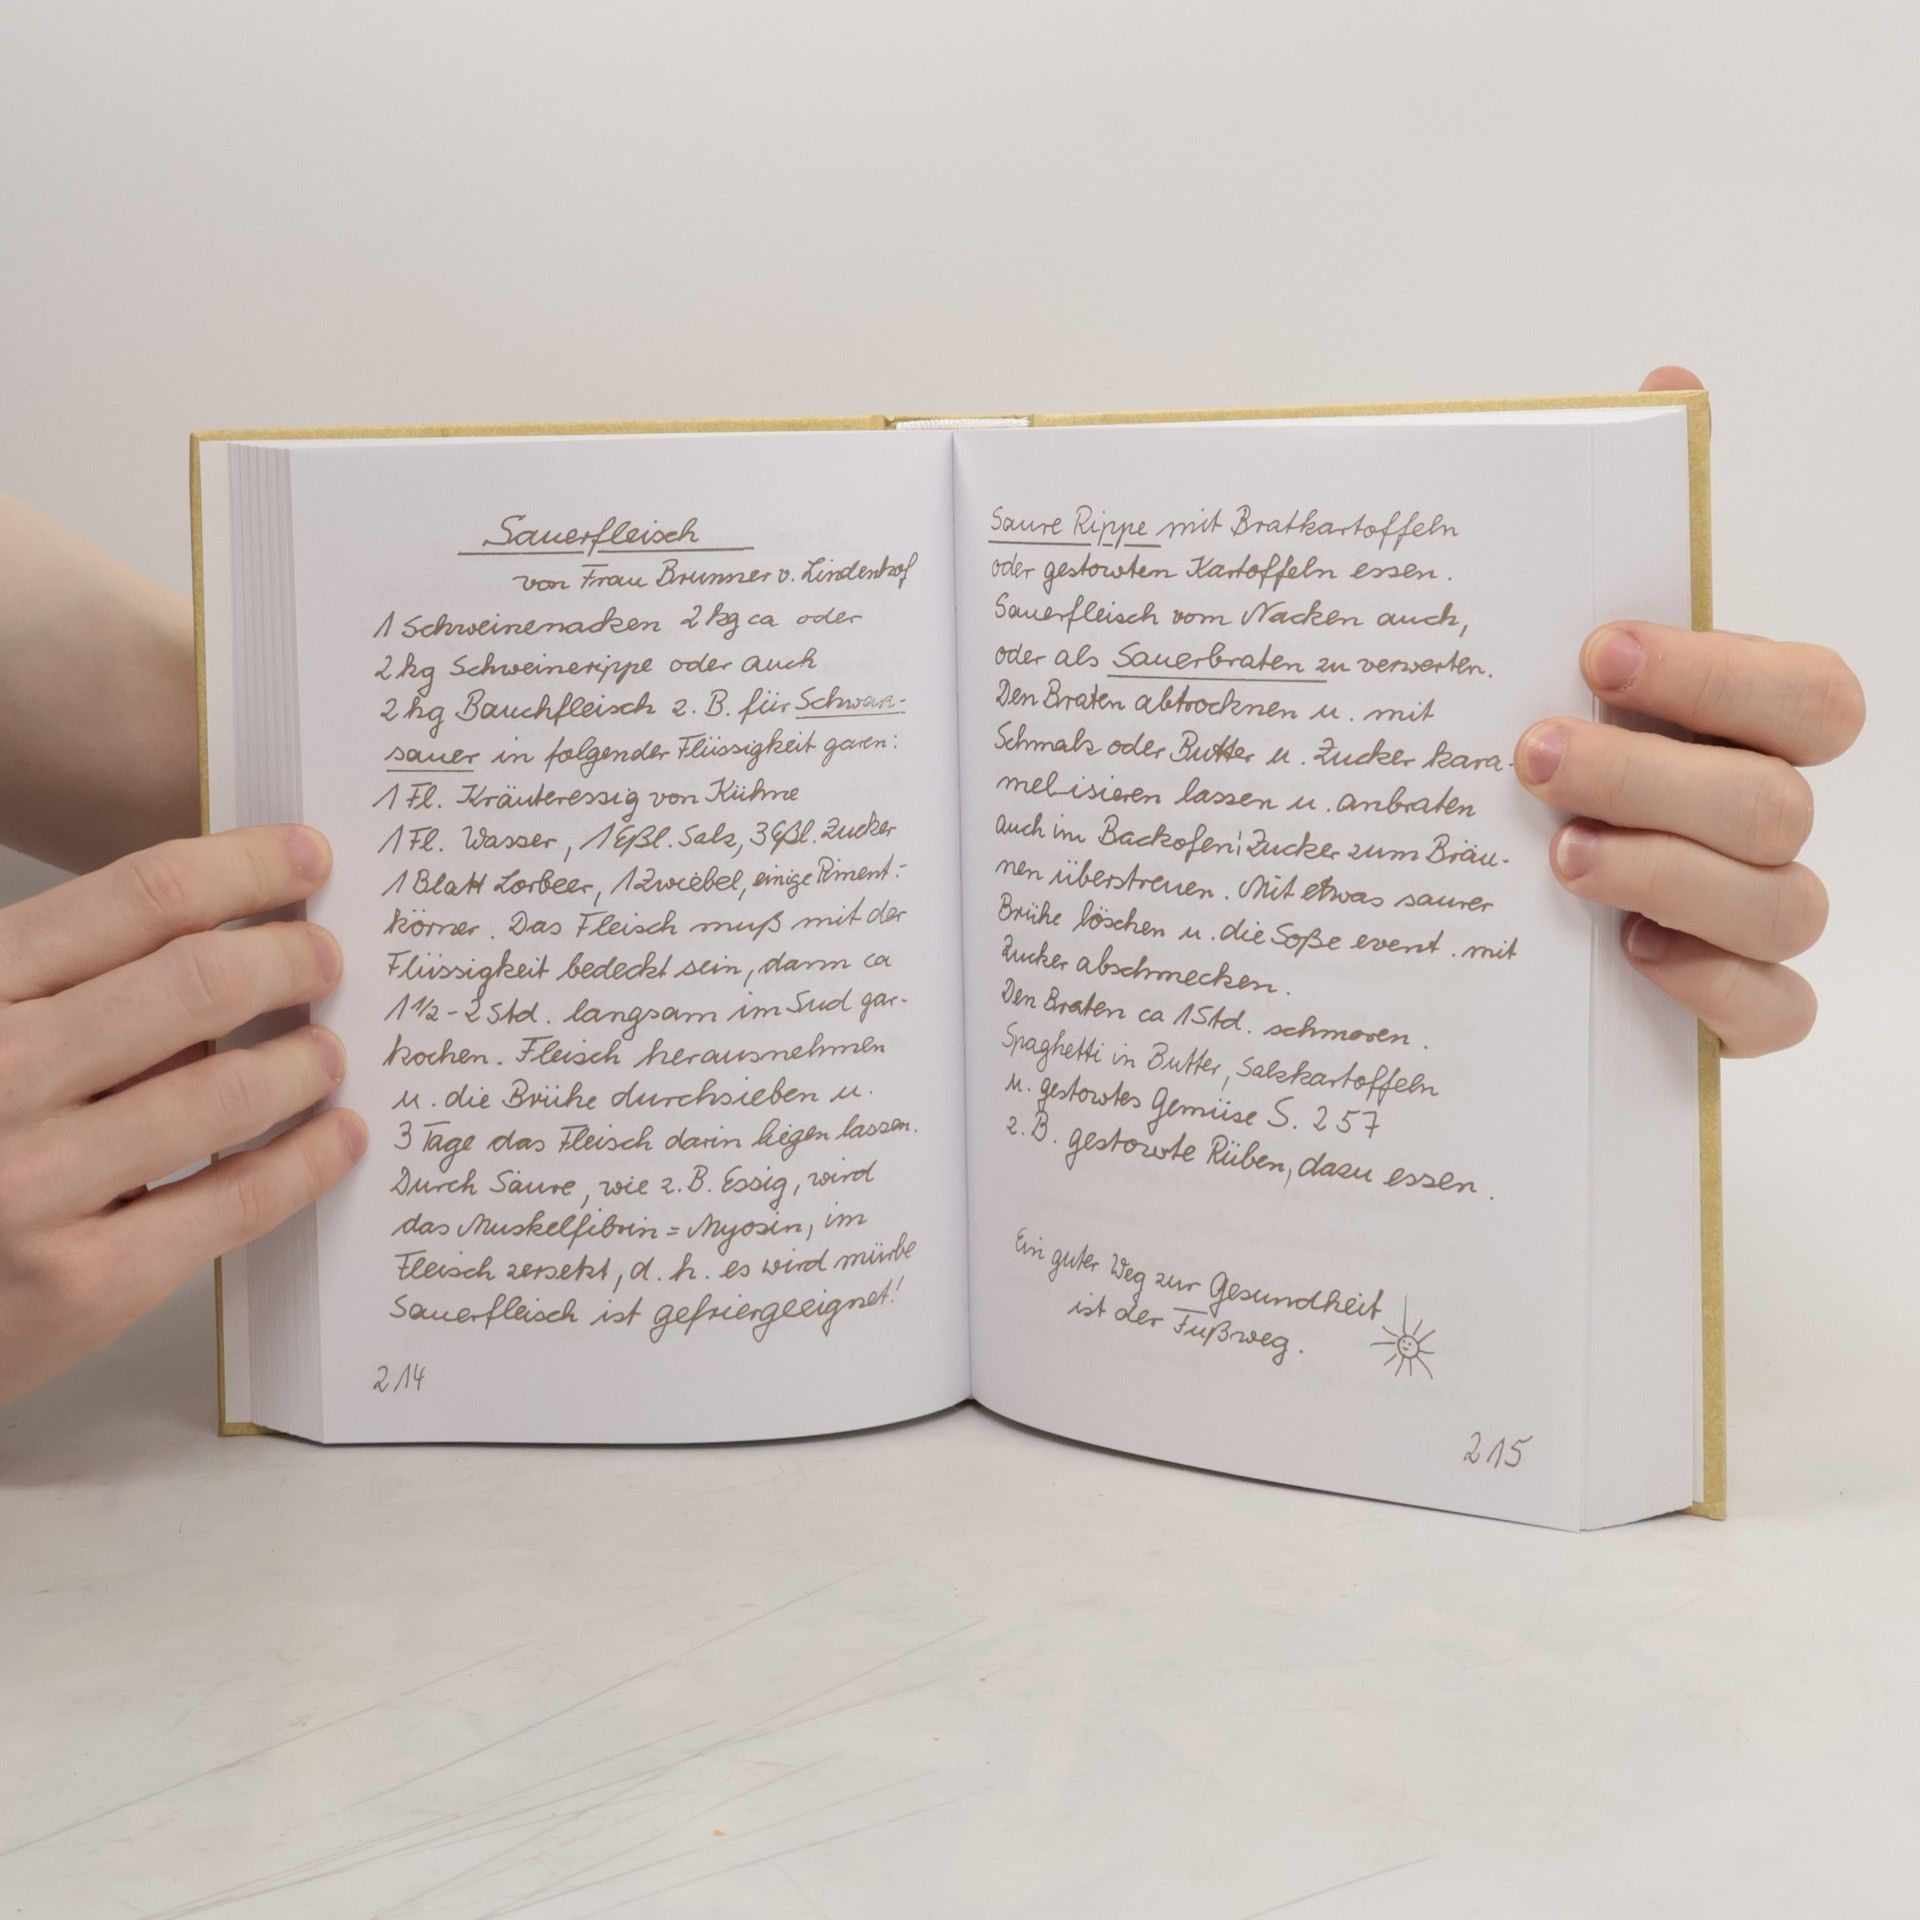 Sauerfleisch
von Frau Brunner v. Lindenhof
1 Schweinenacken 2 kg ca oder
2 kg Schweinerippe oder auch
2 kg Bauchfleisch z. B. für Schwarz-
sauer in folgender Flüssigkeit garen:
1 Fl. Kräuteressig von Kühne
1 Fl. Wasser, 1 Eßl. Salz, 3 Eßl. Zucker
1 Blatt Lorbeer, 1 Zwiebel, einige Piment-
körner. Das Fleisch muß mit der
Flüssigkeit bedeckt sein, dann ca
1 1/2 - 2 Std. langsam im Sud gar-
kochen. Fleisch herausnehmen
u. die Brühe durchsieben u.
3 Tage das Fleisch darin liegen lassen.
Durch Säure, wie z. B. Essig, wird
das Muskelfibrin = Myosin, im
Fleisch zersetzt, d. h. es wird mürbe
Sauerfleisch ist gefriergeeignet!
214
Saure Rippe mit Bratkartoffeln
oder gestowten Kartoffeln essen.
Sauerfleisch vom Nacken auch,
oder als Sauerbraten zu verwerten.
Den Braten abtrocknen u. mit
Schmalz oder Butter u. Zucker kara-
mel-isieren lassen u. anbraten
auch im Backofen! Zucker zum Bräu-
nen überstreuen. Mit etwas saurer
Brühe löschen u. die Soße event. mit
Zucker abschmecken.
Den Braten ca 1 Std. schmoren.
Spaghetti in Butter, Salzkartoffeln
u. gestowtes Gemüse S. 257
z. B. gestowte Rüben, dazu essen.
Ein guter Weg zur Gesundheit
ist der Fußweg.
215